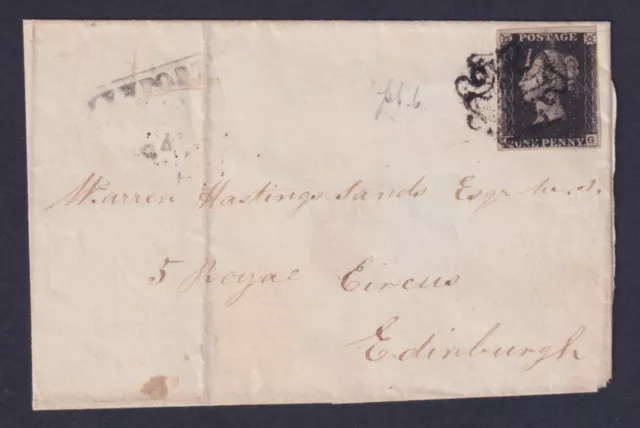 POSTAGE
ONE PENNY
G
pl. 6
Warren Hastings Sands Esqr W.S.
5 Royal Circus
Edinburgh